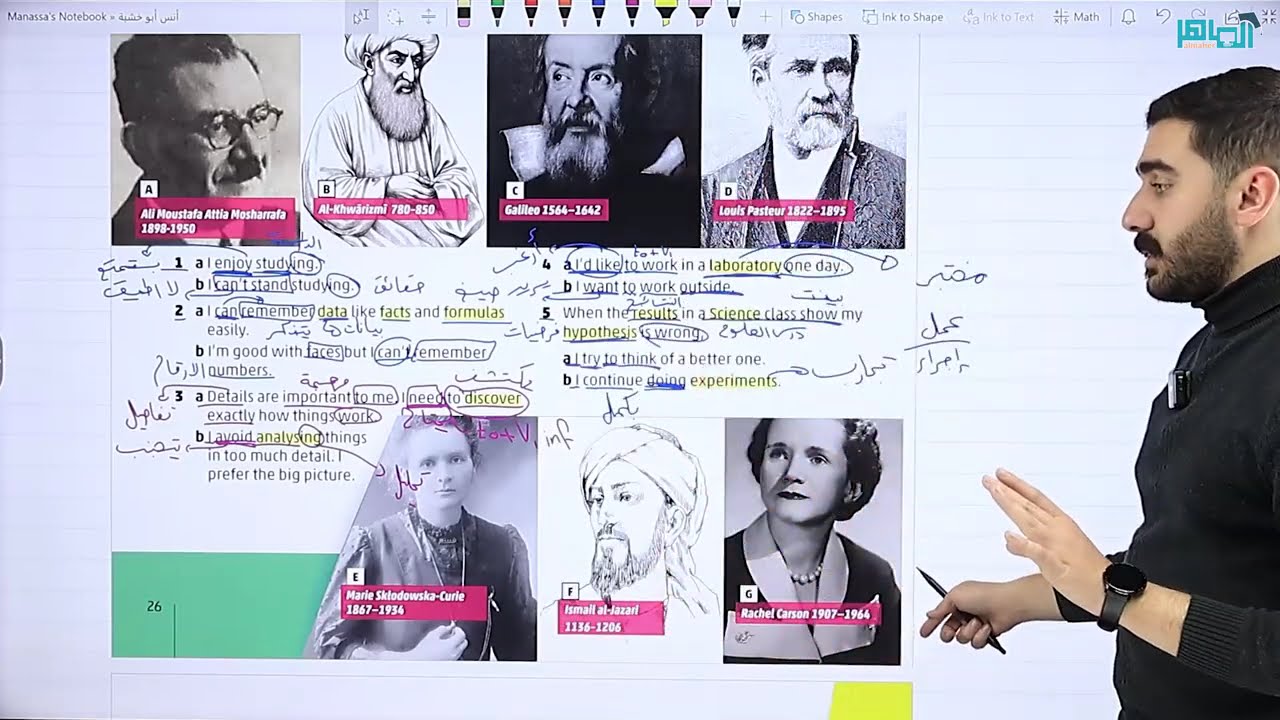 Manassa's Notebook » أنس أبو خشبة
Shapes
Ink to Shape
Ink to Text
Math
الماهر
almaher
A
Ali Moustafa Attia Mosharrafa
1898-1950
B
Al-Khwārizmi 780-850
C
Galileo 1564–1642
D
Louis Pasteur 1822–1895
1 a I enjoy studying.
يستمتع
b I can't stand studying.
لا اطيق
حقائق
2 a I can remember data like facts and formulas
easily.
بيانات
يتذكر
b I'm good with faces but I can't remember
numbers.
الارقام
مهمة
يكتشف
3 a Details are important to me. I need to discover
exactly how things work.
تفاصيل
يحتاج
to + V1 inf
b I avoid analysing things
in too much detail. I
prefer the big picture.
يتجنب
تحليل
أرغب
to + V1
4 a I'd like to work in a laboratory one day.
مختبر
b I want to work outside.
يريد
النتائج
بينت
5 When the results in a Science class show my
hypothesis is wrong,
فرضيات
درس العلوم
a I try to think of a better one.
b I continue doing experiments.
تجارب
عمل
إجراء
يكمل
26
E
Marie Skłodowska-Curie
1867–1934
F
Ismail al-Jazari
1136–1206
G
Rachel Carson 1907–1964